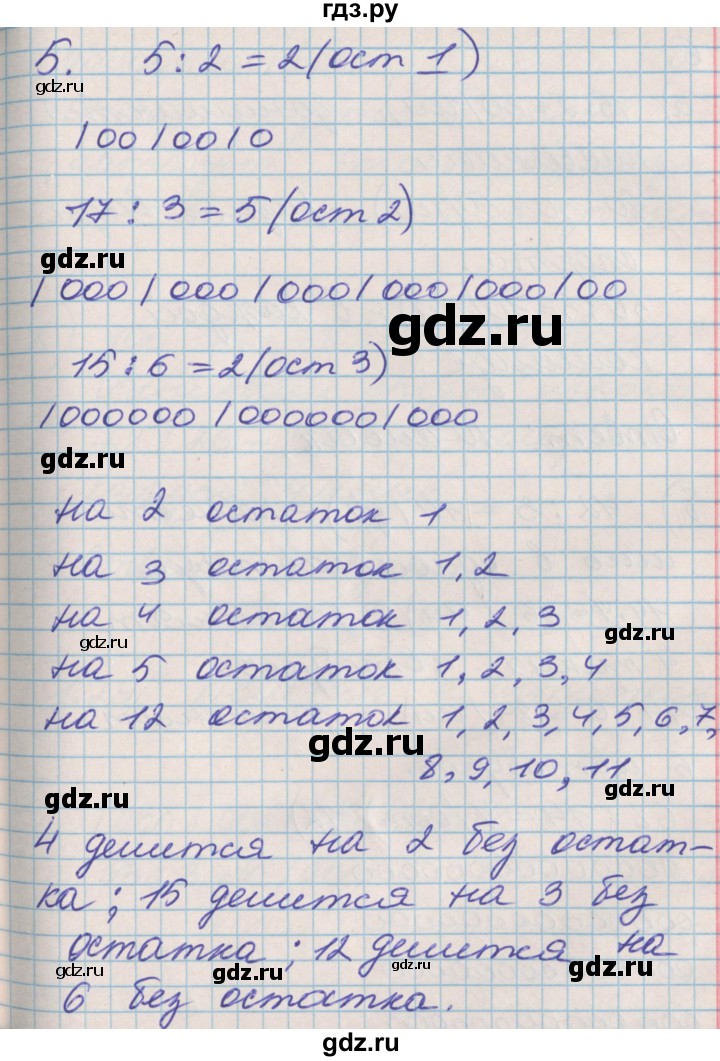 гдз.ру
5. 5 : 2 = 2 (ост 1)
gdz.ru
/00/00/0
17 : 3 = 5 (ост 2)
gdz.ru
/000/000/000/000/000/00
gdz.ru
15 : 6 = 2 (ост 3)
/000000/000000/000
gdz.ru
на 2 остаток 1
на 3 остаток 1, 2
на 4 остаток 1, 2, 3
gdz.ru
gdz.ru
на 5 остаток 1, 2, 3, 4
на 12 остаток 1, 2, 3, 4, 5, 6, 7,
gdz.ru
8, 9, 10, 11
gdz.ru
gdz.ru
4 делится на 2 без остат-
ка; 15 делится на 3 без
остатка; 12 делится на
gdz.ru
gdz.ru
gdz.ru
gdz.ru
6 без остатка.
gdz.ru